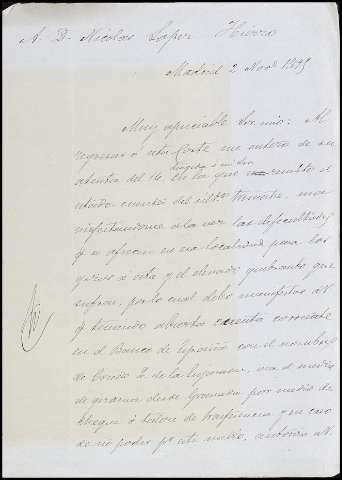 A. D. Nicolas Lopez Hierro
Madrid 2 Nov. 1895
Muy apreciable Sor. mio: Al
regresar á esta Corte me entero de su
dirigida á mi Sra
atenta del 14 en la que remite el
estado cuenta del ult.º trimestre, ma
nifestandome á la vez las dificultades
q se ofrecen en esa localidad para los
giros á esta y el elevado quebranto que
sufren, por lo cual debo manifestar á V.
q teniendo abierta cuenta corriente
en el Banco de España con el nombre
de de la sea el medio
de girarme desde Granada por medio de
cheque ó talon de trasferencia y en caso
de no poder pr este medio, V.